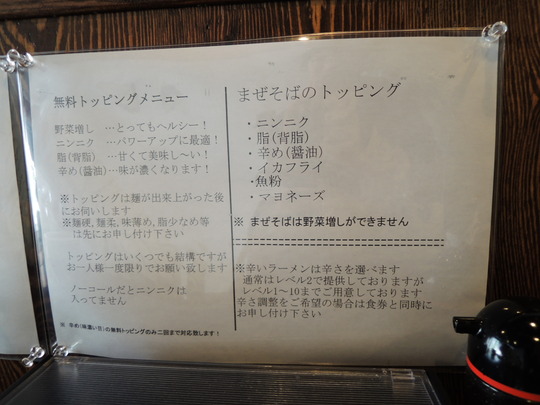 無料トッピングメニュー
野菜増し …とってもヘルシー！
ニンニク …パワーアップに最適！
脂(背脂) …甘くて美味し～い！
辛め(醤油)…味が濃くなります！
※トッピングは麺が出来上がった後
にお伺いします
※麺硬,麺柔,味薄め,脂少なめ等
は先にお申し付け下さい
トッピングはいくつでも結構ですが
お一人様一度限りでお願い致します
ノーコールだとニンニクは
入ってません
※ 辛め(味濃い目)の無料トッピングのみ二回まで対応致します！
まぜそばのトッピング
・ニンニク
・脂(背脂)
・辛め(醤油)
・イカフライ
・魚粉
・マヨネーズ
※ まぜそばは野菜増しができません
※辛いラーメンは辛さを選べます
通常はレベル2で提供しておりますが
レベル1～10までご用意しております
辛さ調整をご希望の場合は食券と同時に
お申し付け下さい